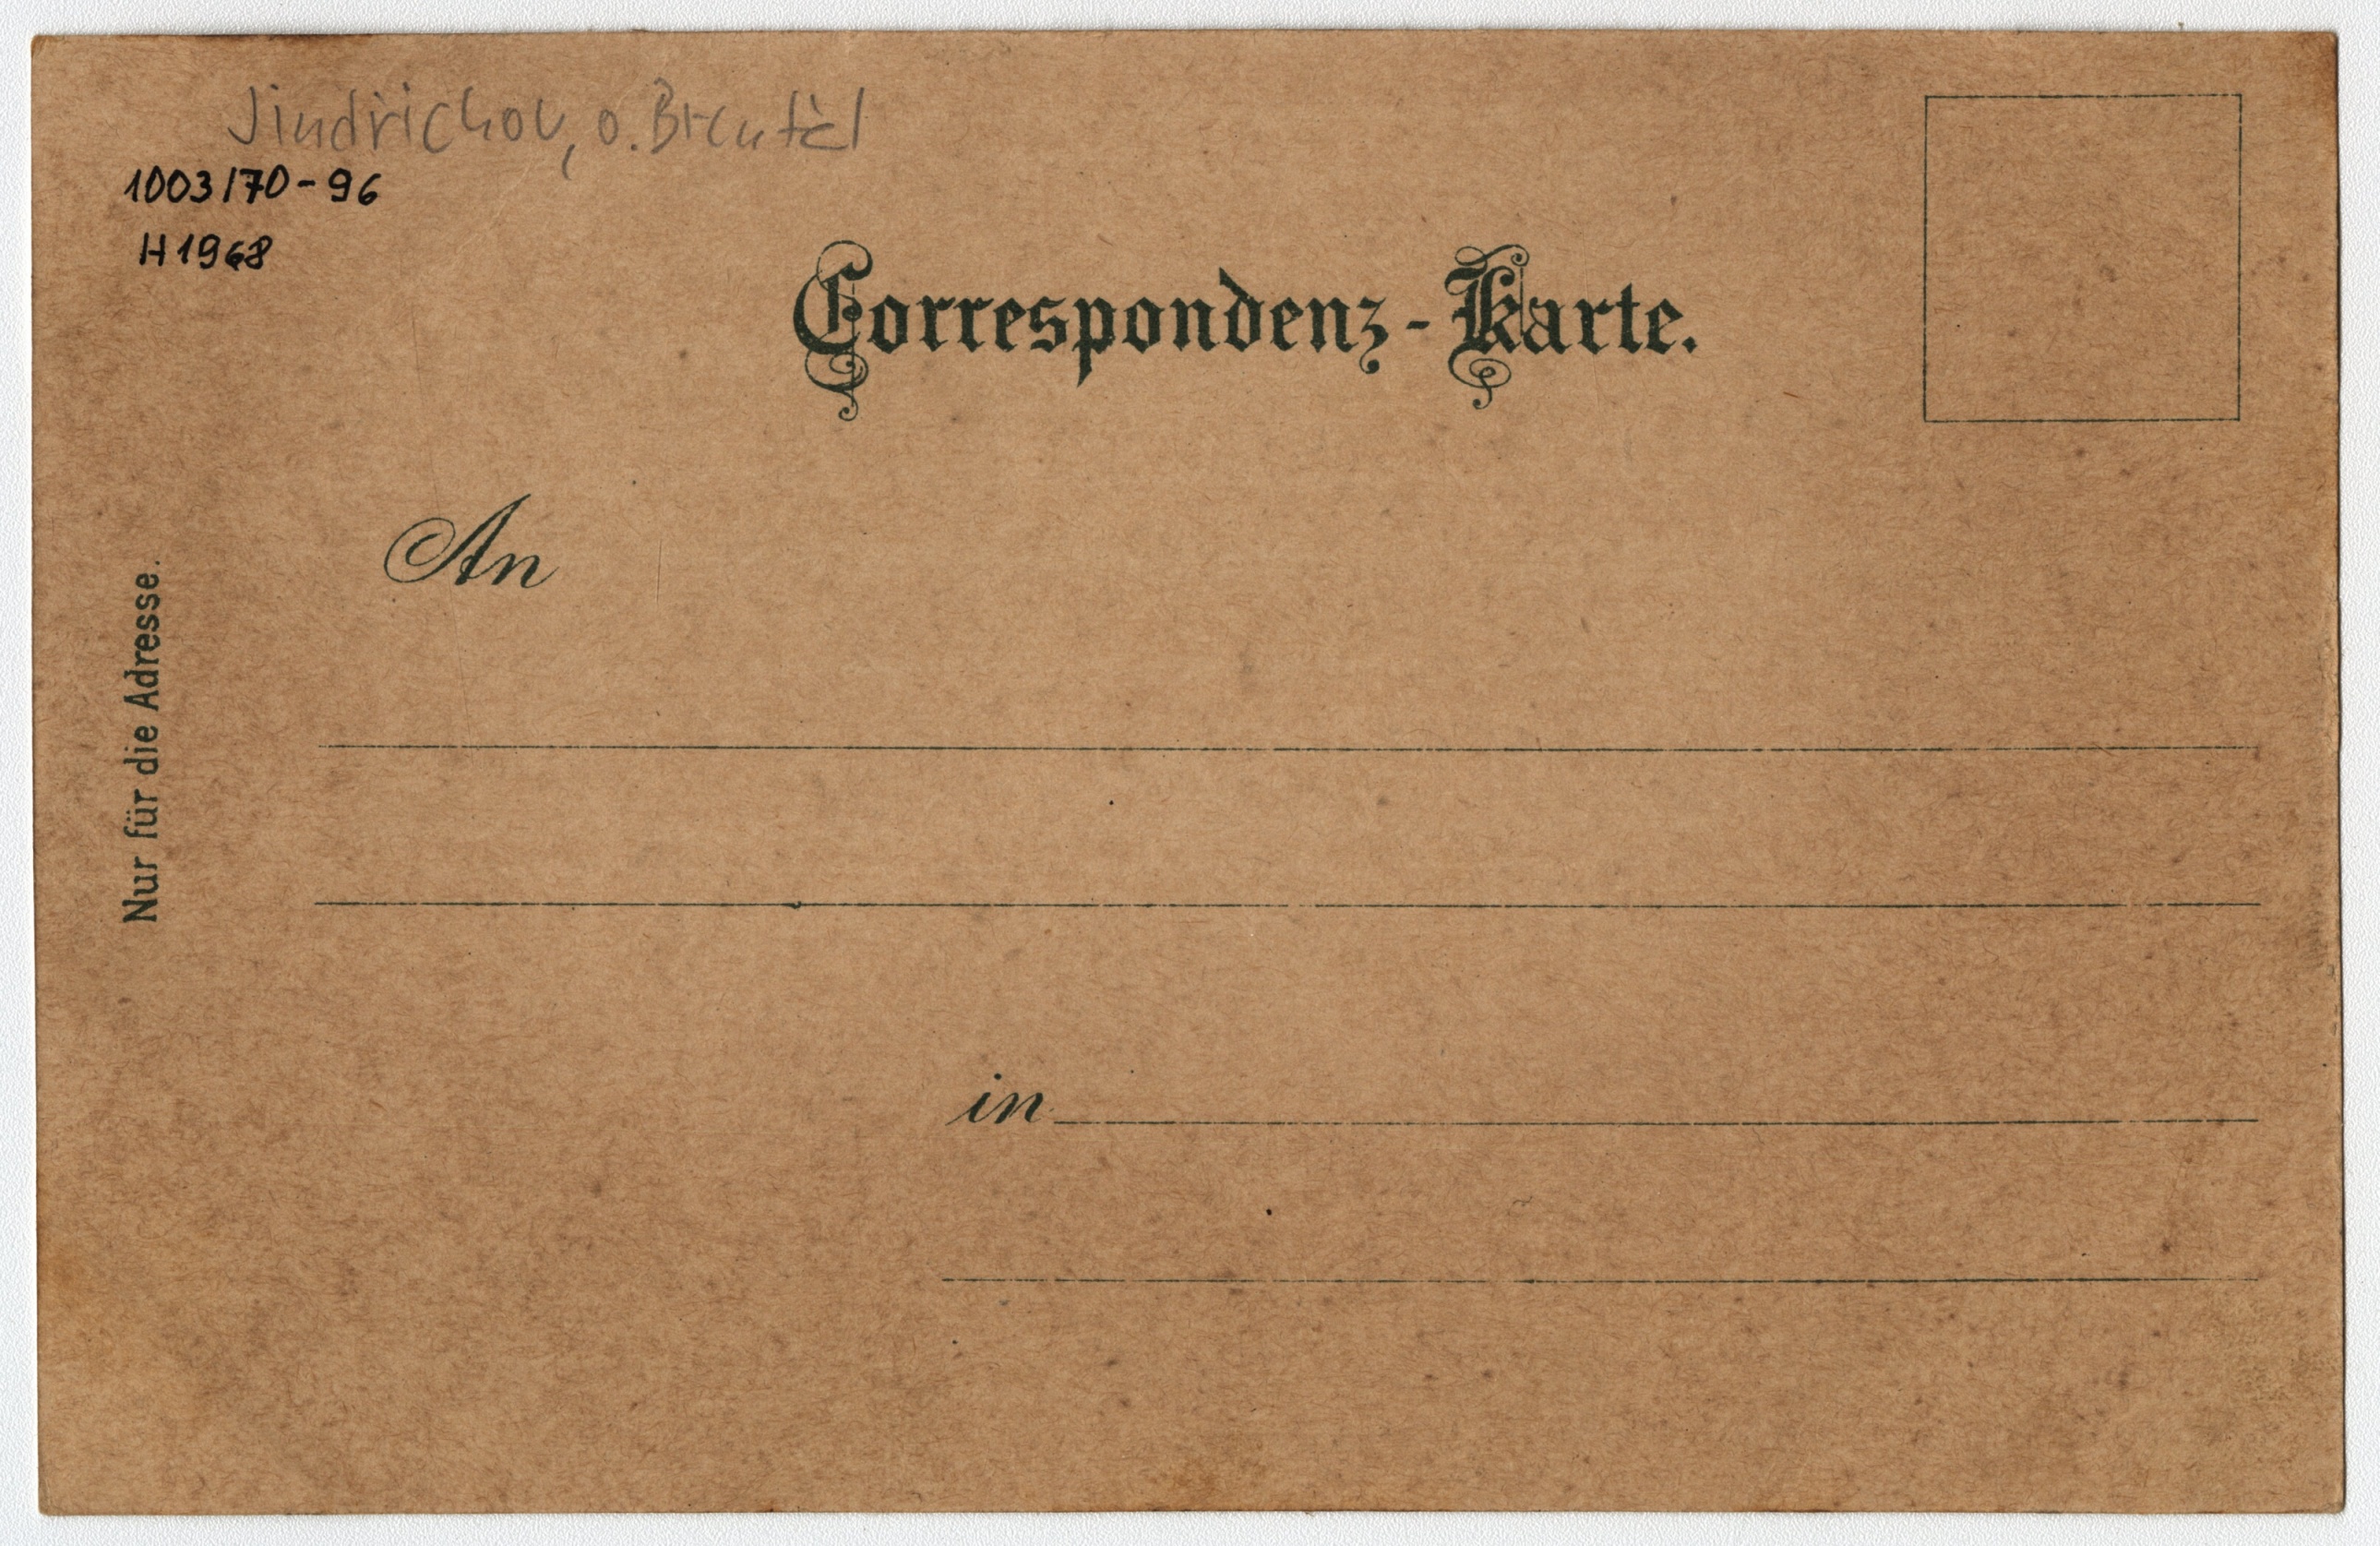 Jindřichov, o. Bruntál
1003/70-96
H1968
Correspondenz-Karte.
An
Nur für die Adresse.
in